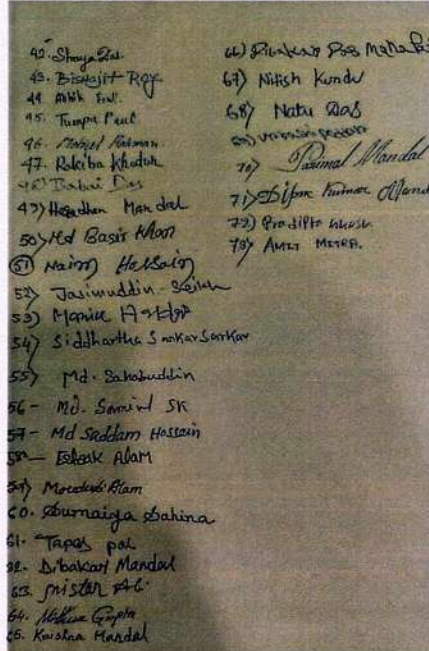 42. Shreya Das
43. Biswajit Roy
44.
45. Tumpa Paul
46. Rahman
47. Rakiba Khatun
48) Babai Das
49) Haradhan Mandal
50) Md Basir Khan
51 Naim Hossain
52) Jasimuddin Seikh
53) Manica
54) Siddhartha Sarkar Sarkar
55) Md. Sahabuddin
56 - Md. Samiul SK
57 - Md Saddam Hossain
58 - Alam
59) Alam
60. Sumaiya Sahina
61. Tapas pal
62. Dibakar Mandal
63. Mister Ali
64. Gupta
65. Krishna Mandal
66) Dibakar Das
67) Nitish Kundu
68) Natu Das
69)
70) Parimal Mandal
71) Dipak Kumar
72) Pradipta Ghosh
73) AMIT MITRA.